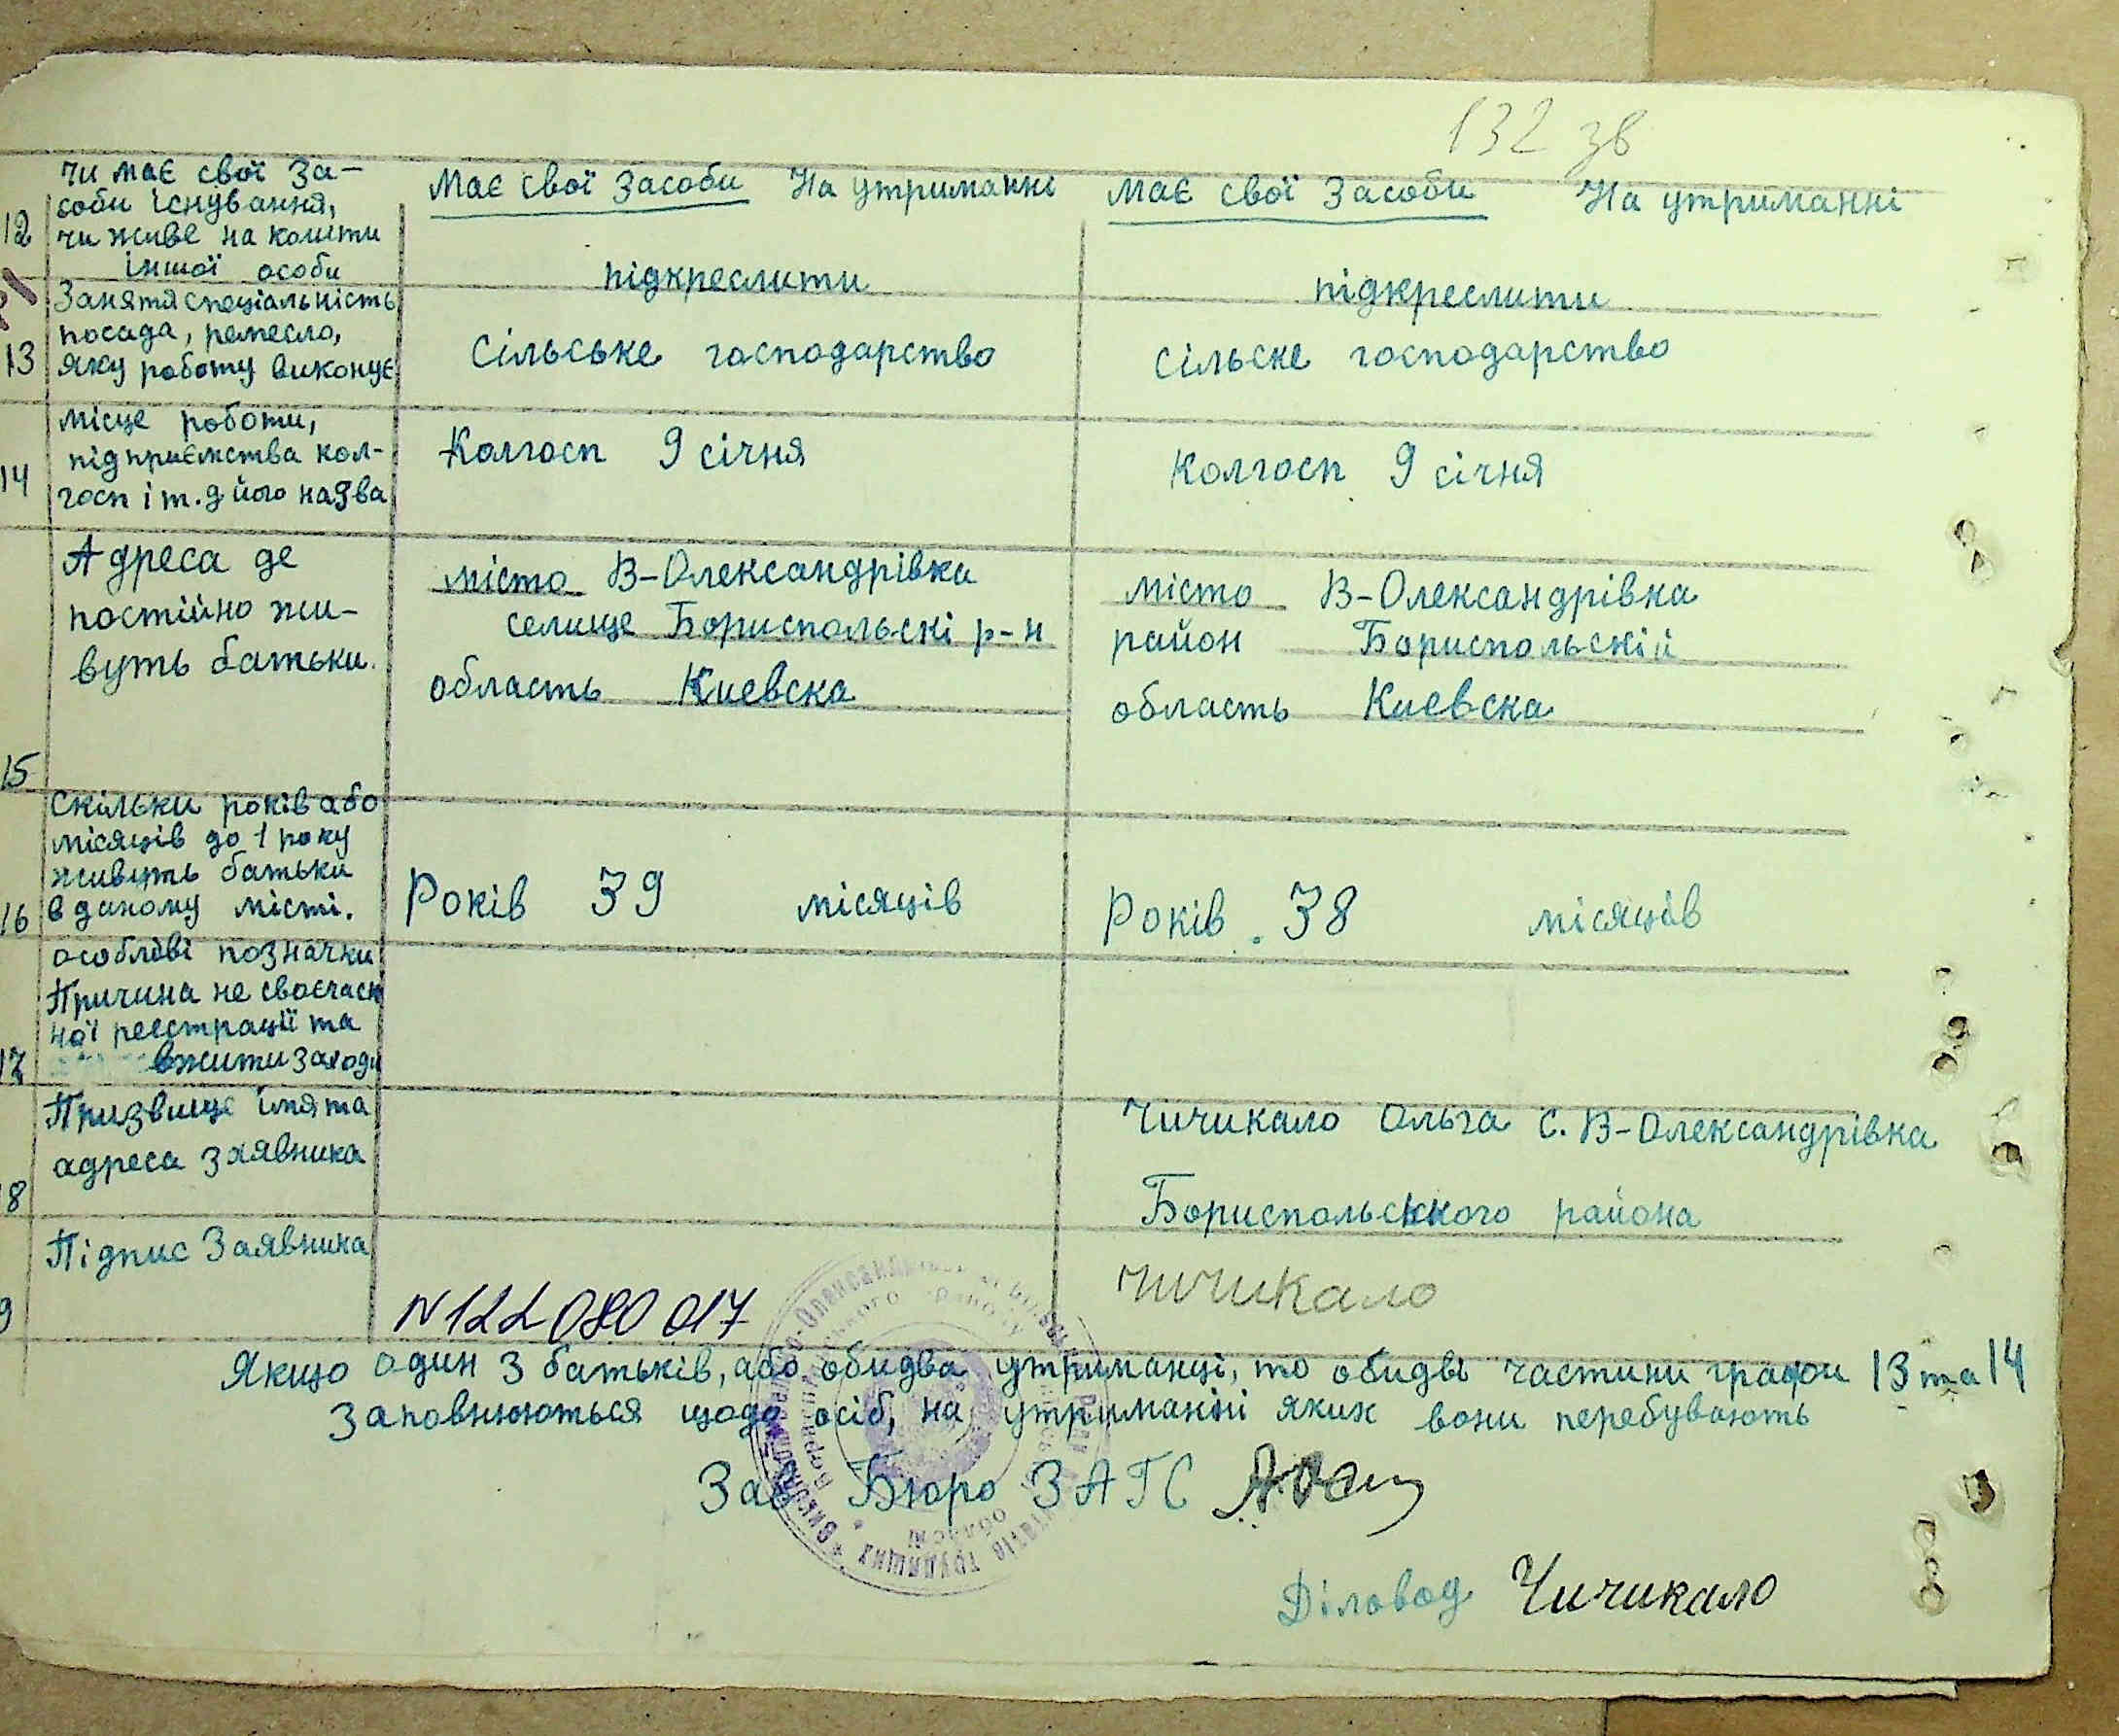 132 зв
12
чи має свої за-
соби існування,
чи живе на кошти
іншої особи
Має свої засоби На утриманні
Має свої засоби На утриманні
підкреслити
підкреслити
13
Заняття спеціальність
посада, ремесло,
яку роботу виконує
Сільське господарство
Сільске господарство
14
Місце роботи,
підприємства кол-
госп і т.д його назва
Колгосп 9 січня
Колгосп 9 січня
15
Адреса де
постійно жи-
вуть батьки.
місто В-Олександрівка
селище Бориспольскі р-н
область Киевска
місто В-Олександрівка
район Бориспольскій
область Киевска
16
Скільки років або
місяців до 1 року
живуть батьки
в даному місті.
Років 39 місяців
Років 38 місяців
17
особліві позначки
Причина не своєчасн
ної реєстрації та
вжити заходи
18
Призвище імя та
адреса заявника
Чичикало Ольга С. В-Олександрівка
Бориспольского района
9
Підпис Заявника
N122 080 017
Чичикало
Якщо один з батьків, або обидва утриманці, то обидві частини графи 13 та 14
Заповнюються щодо осіб, на утриманні яких вони перебувають
Зав Бюро ЗАГС
Діловод Чичикало